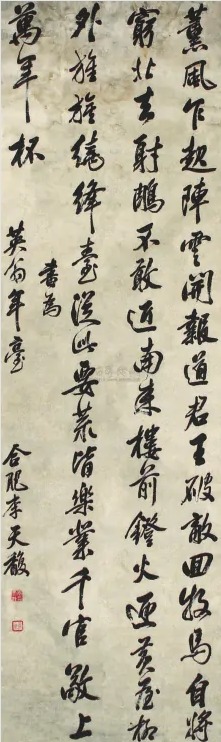 薰風乍起陣雲開報道君王破敵回牧馬自將
窮北去射鵰不敢近南来樓前鐙火迎黄屋柳
外旌旗繞絳臺從此要荒皆樂業千官敬上
萬年杯
書為
英翁年臺
合肥李天馥